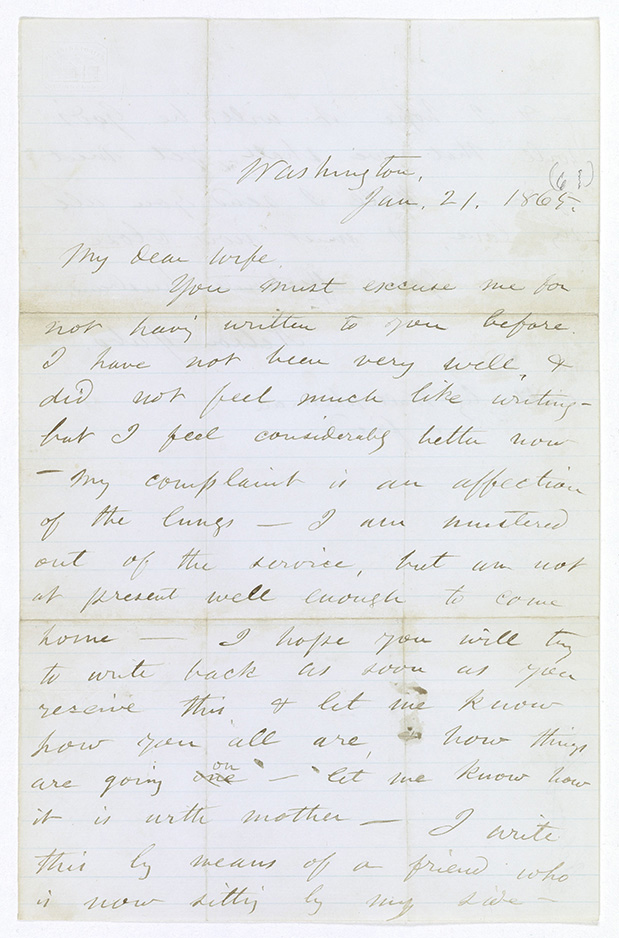 Washington,
(61)
Jan. 21. 1865.
My dear wife.
You must excuse me for
not havig written to you before.
I have not been very well, &
did not feel much like writing–
but I feel considerably better now
– my complaint is an affection
of the lungs – I am mustered
out of the service, but am not
at present well enough to come
home — I hope you will try
to write back as soon as you
receive this & let me know
how you all are, how things
are going one on – let me know how
it is with mother — I write
this by means of a friend who
is now sittig by my side –